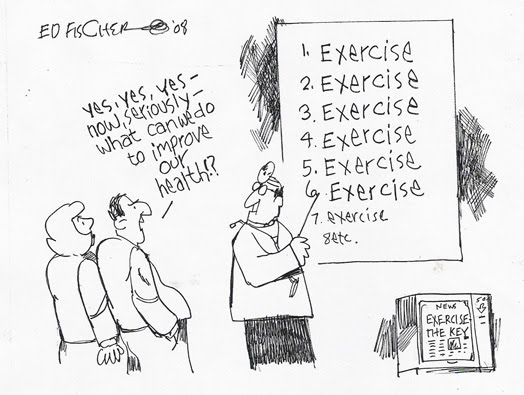 ED FISCHER '08
yes, yes, yes—
now, seriously—
what can we do
to improve
our
health!?
1. Exercise
2. Exercise
3. Exercise
4. Exercise
5. Exercise
6. Exercise
7. exercise
8 etc.
NEWS
EXERCISE
THE KEY
50¢